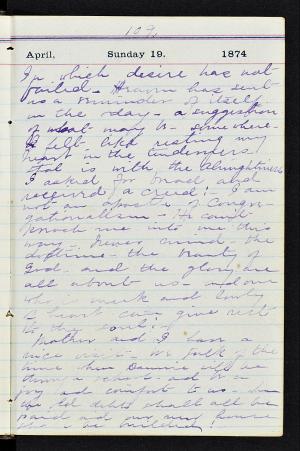 109.
April, Sunday 19. 1874
In which desire has not
failed - Heaven has sent
us a reminder of itself
in the day - a suggestion
of what may be - somewhere.
I felt like resting my
heart in the tenderness
that is with the Almightiness
I asked for bread and
received a creed! I am
not an apostle of Congre-
gationalism - He can't
preach me into one this
way. Never mind the
doctrine - the beauty of
God and the glory are
all about us - and one
who is meek and lowly
of heart can give rest
to the soul!
Mother and I have a
nice visit - We talk of the
time when
joy and comfort to us -
old debts shall all be
paid and our new house
shall be builded!